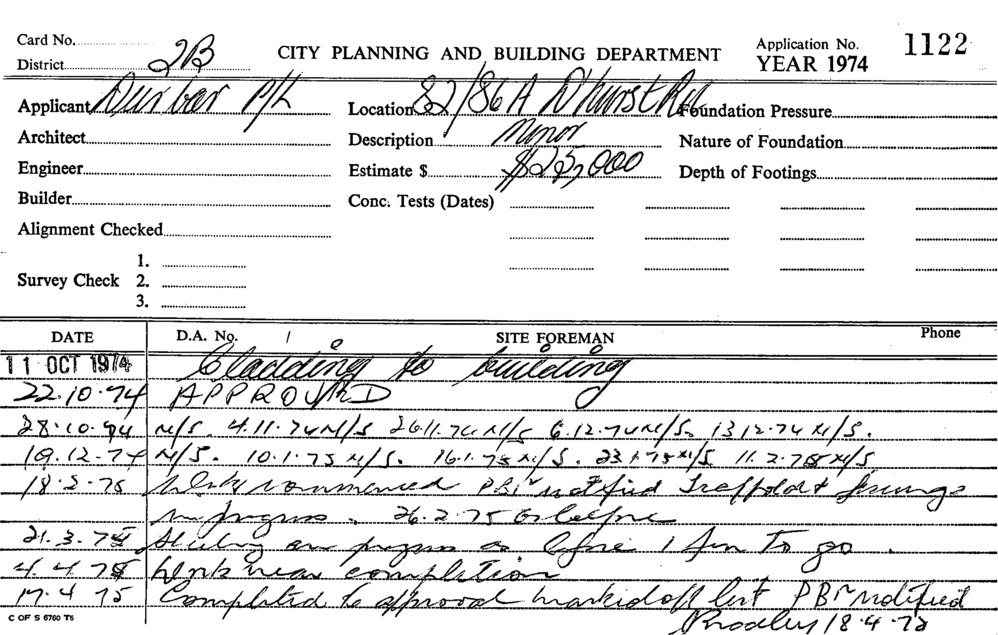 Card No.
District 2B
CITY PLANNING AND BUILDING DEPARTMENT
Application No. 1122
YEAR 1974
Applicant Durbar P/L
Location 82/86A D'hurst Rd
Foundation Pressure
Architect
Description Minor
Nature of Foundation
Engineer
Estimate $ $25,000
Depth of Footings
Builder
Conc. Tests (Dates)
Alignment Checked
Survey Check 1.
2.
3.
DATE D.A. No. / SITE FOREMAN Phone
11 OCT 1974 Cladding to building
22.10.74 APPROVED
28.10.74 N/S 4.11.74 N/S 26.11.74 N/S 6.12.74 N/S. 13.12.74 N/S.
19.12.74 N/S. 10.1.75 N/S. 16.1.75 N/S. 23.1.75 N/S 11.2.75 N/S
18.2.75 Work commenced PBI notified Scaffold &
in progress. 26.2.75 as before
21.3.75 in progress as before 1 to go.
4.4.75 Work near completion
17.4.75 Completed to approval marked off list PBI notified
18.4.75
C OF S 6760 T6